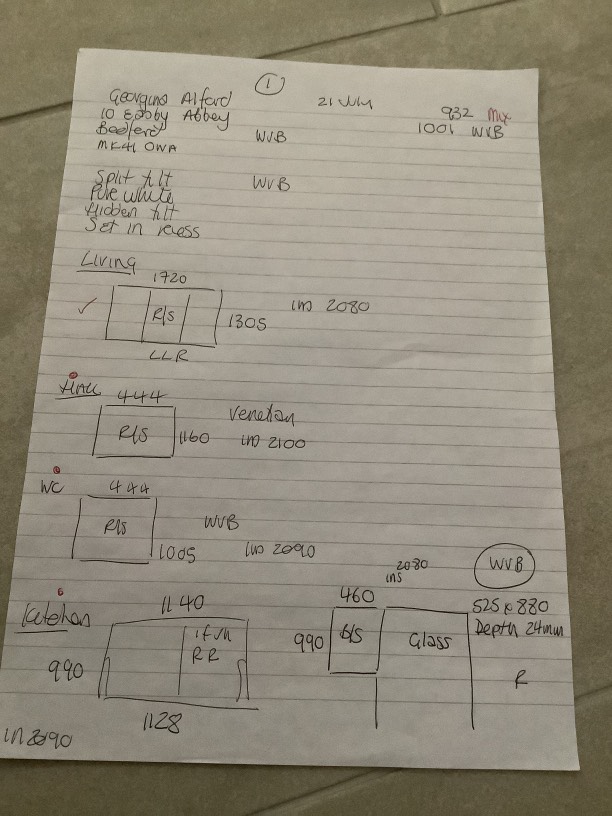 1
Georgina Alford 21 July 932 Mix
10 Abbey 1001 WVB
Bedford WVB
MK41 0WA
Split tilt WVB
Pure white
Hidden tilt
Set in recess
Living
1720
R/S 1305 ins 2080
LLR
444
Venetian
R/S 1160 ins 2100
WC 444
R/S WVB
1005 ins 2090
2080 WVB
ins
Kitchen 1140 460 525 x 880
Depth 24mm
990 RR 990 Glass
R
1128